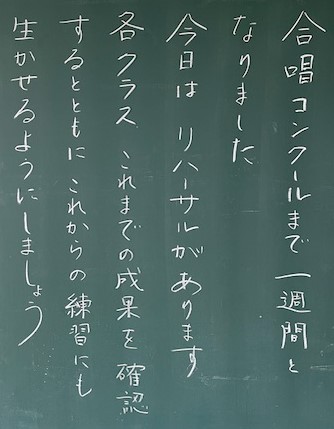 合唱コンクールまで一週間と
なりました
今日は リハーサルがあります
各クラス これまでの成果を確認
するとともに これからの練習にも
生かせるようにしましょう